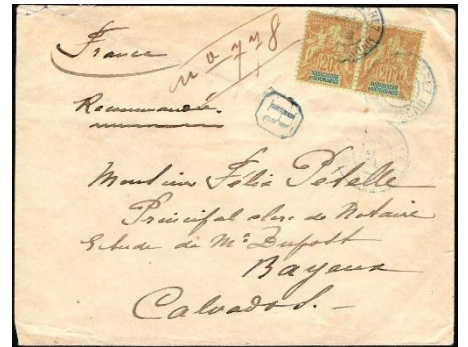 France
no 778
Recommandé.
R
20
20
Monsieur Félix Petelle
Principal clerc de Notaire
Etude de Me Dupost
Bayeux
Calvados.-